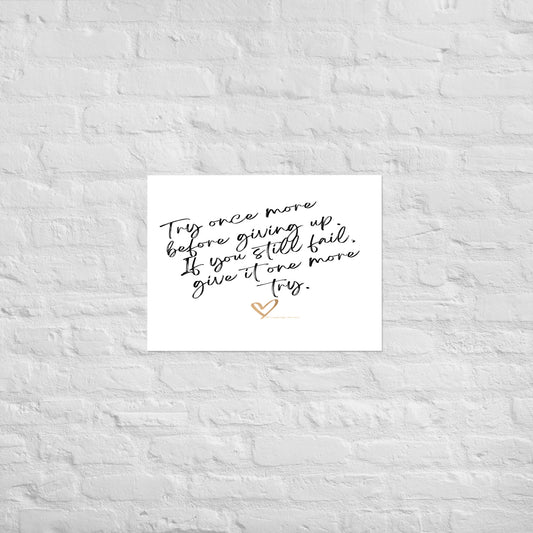 Try once more
before giving up.
If you still fail.
give it one more
Try.